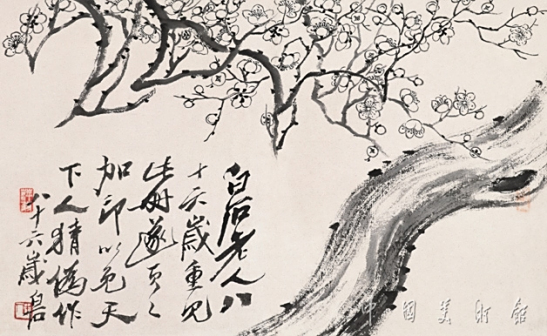 白石老人八
十六歲重見
此册遂頁之
加印以免天
下人猜偽作
八十六歲白石
中國美術館